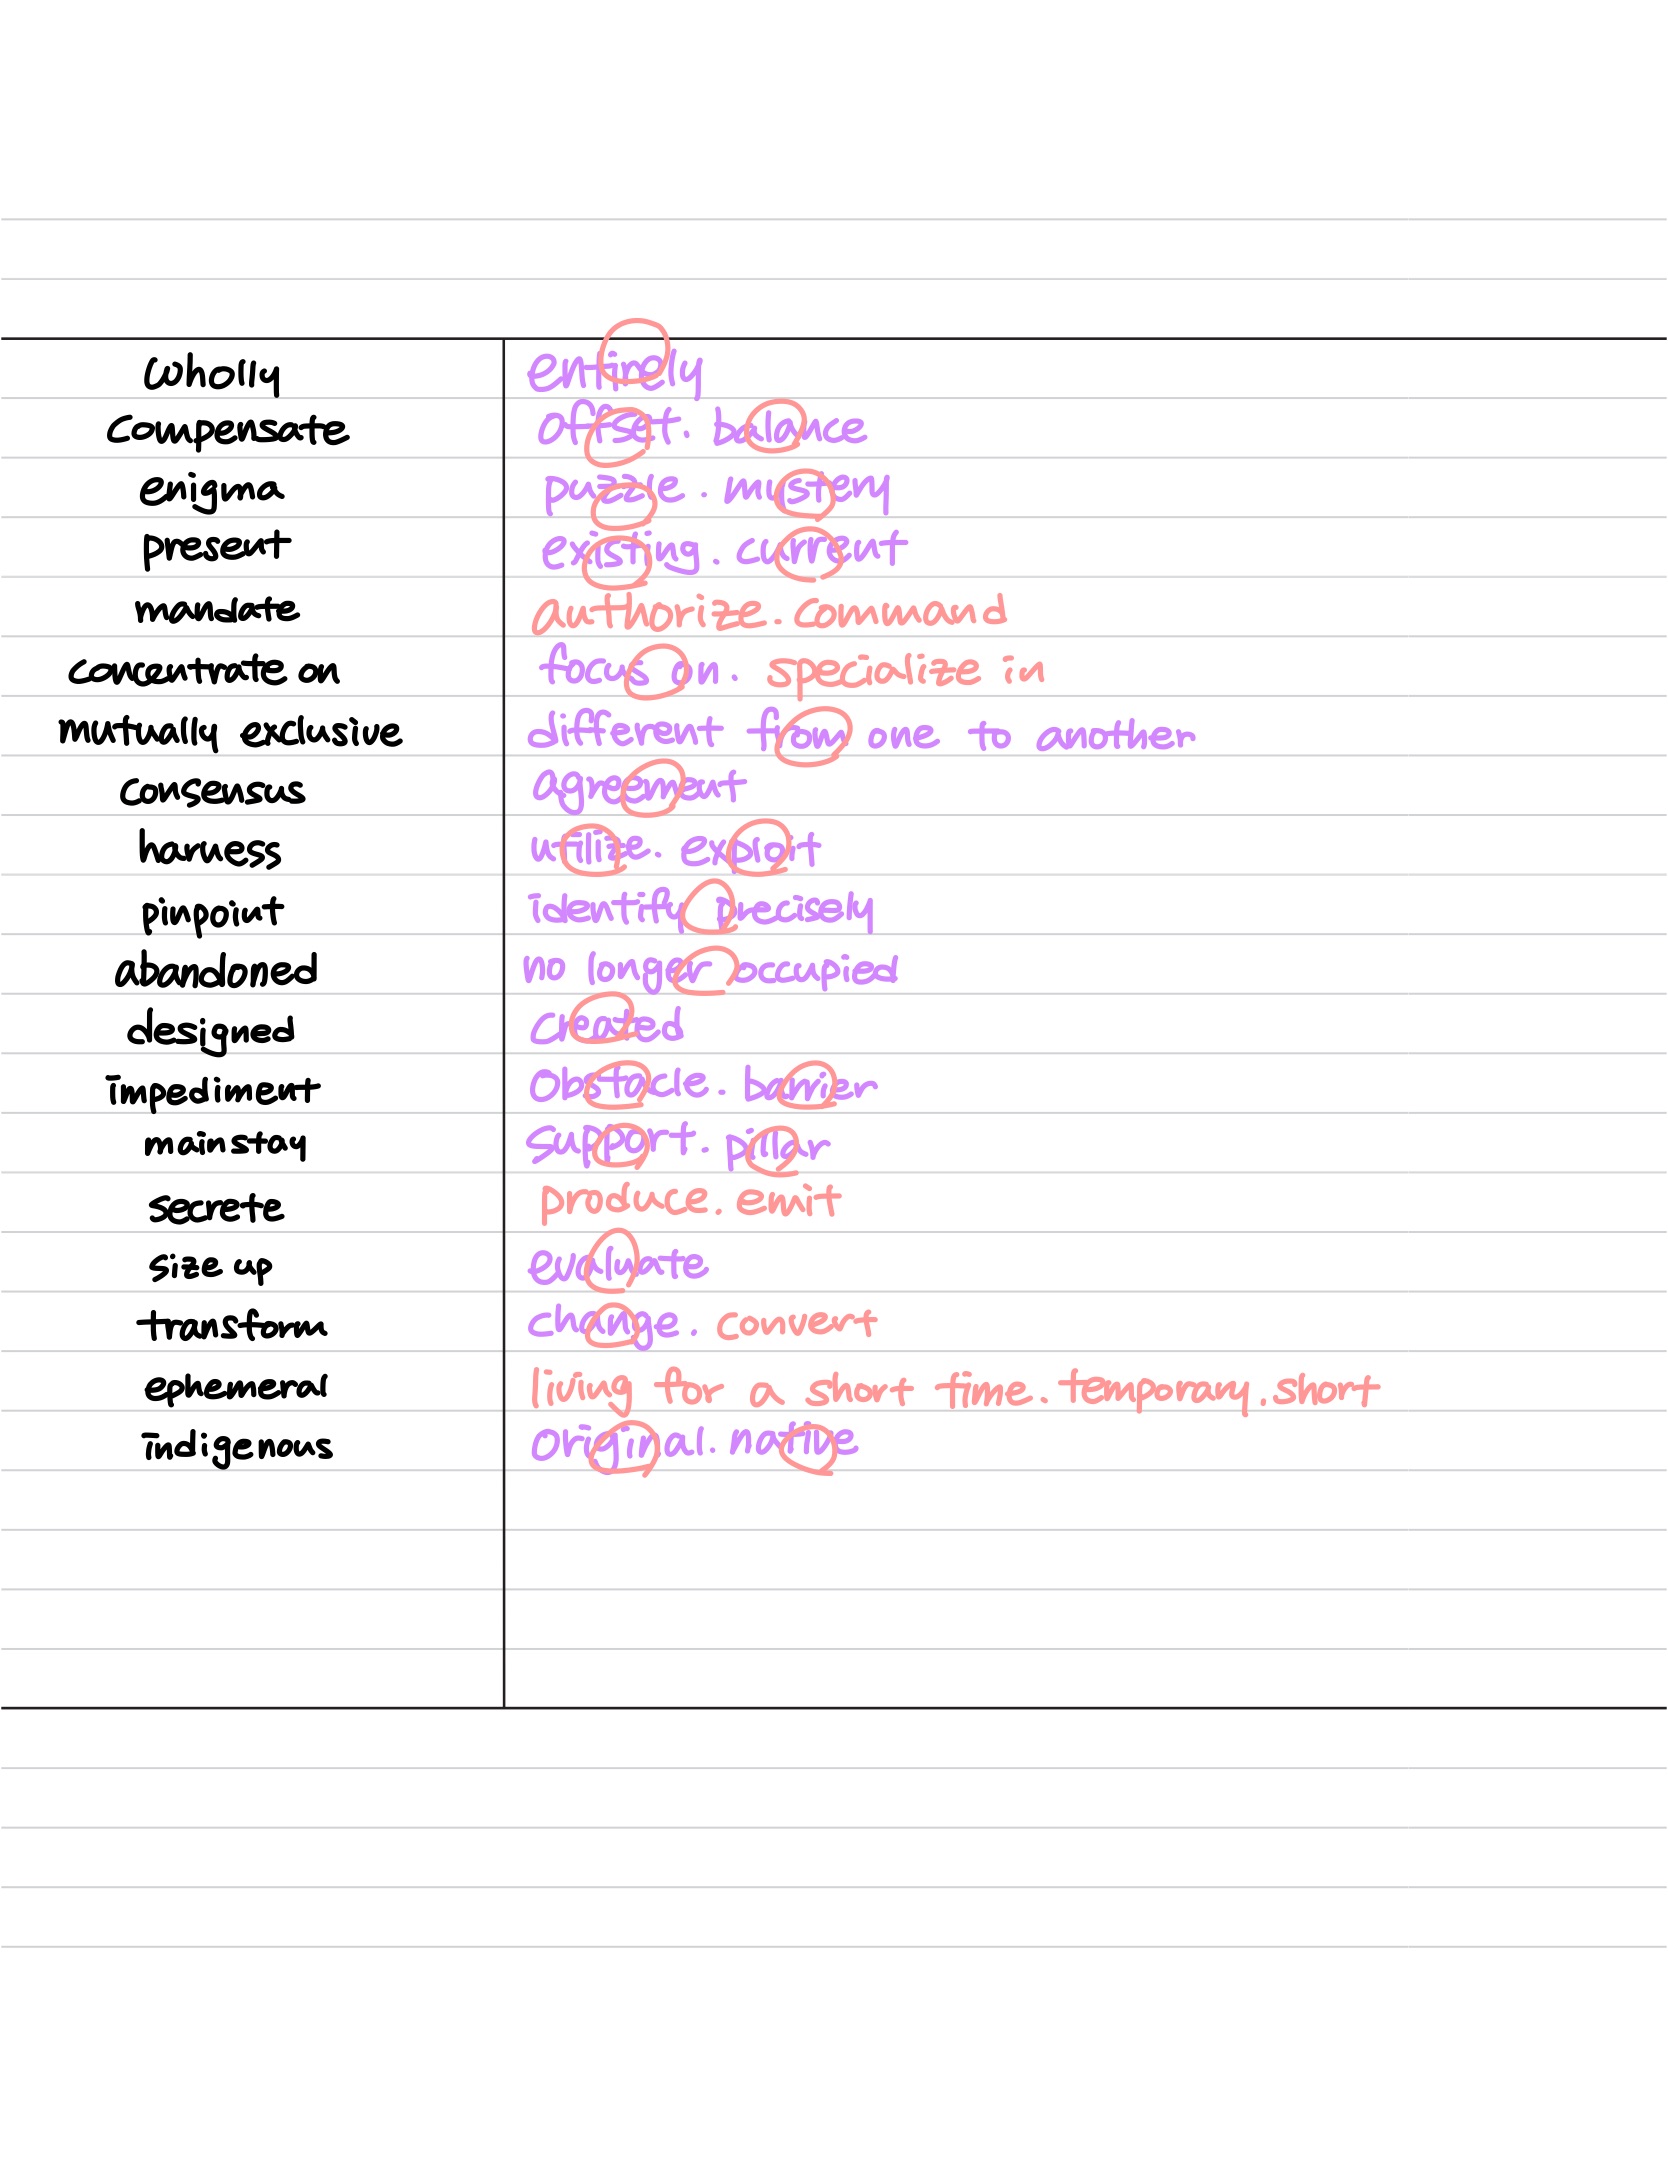 wholly entirely
compensate offset. balance
enigma puzzle. mystery
present existing. current
mandate authorize. command
concentrate on focus on. specialize in
mutually exclusive different from one to another
consensus agreement
harness utilize. exploit
pinpoint identify precisely
abandoned no longer occupied
designed created
impediment obstacle. barrier
mainstay support. pillar
secrete produce. emit
size up evaluate
transform change. convert
ephemeral living for a short time. temporary. short
indigenous original. native